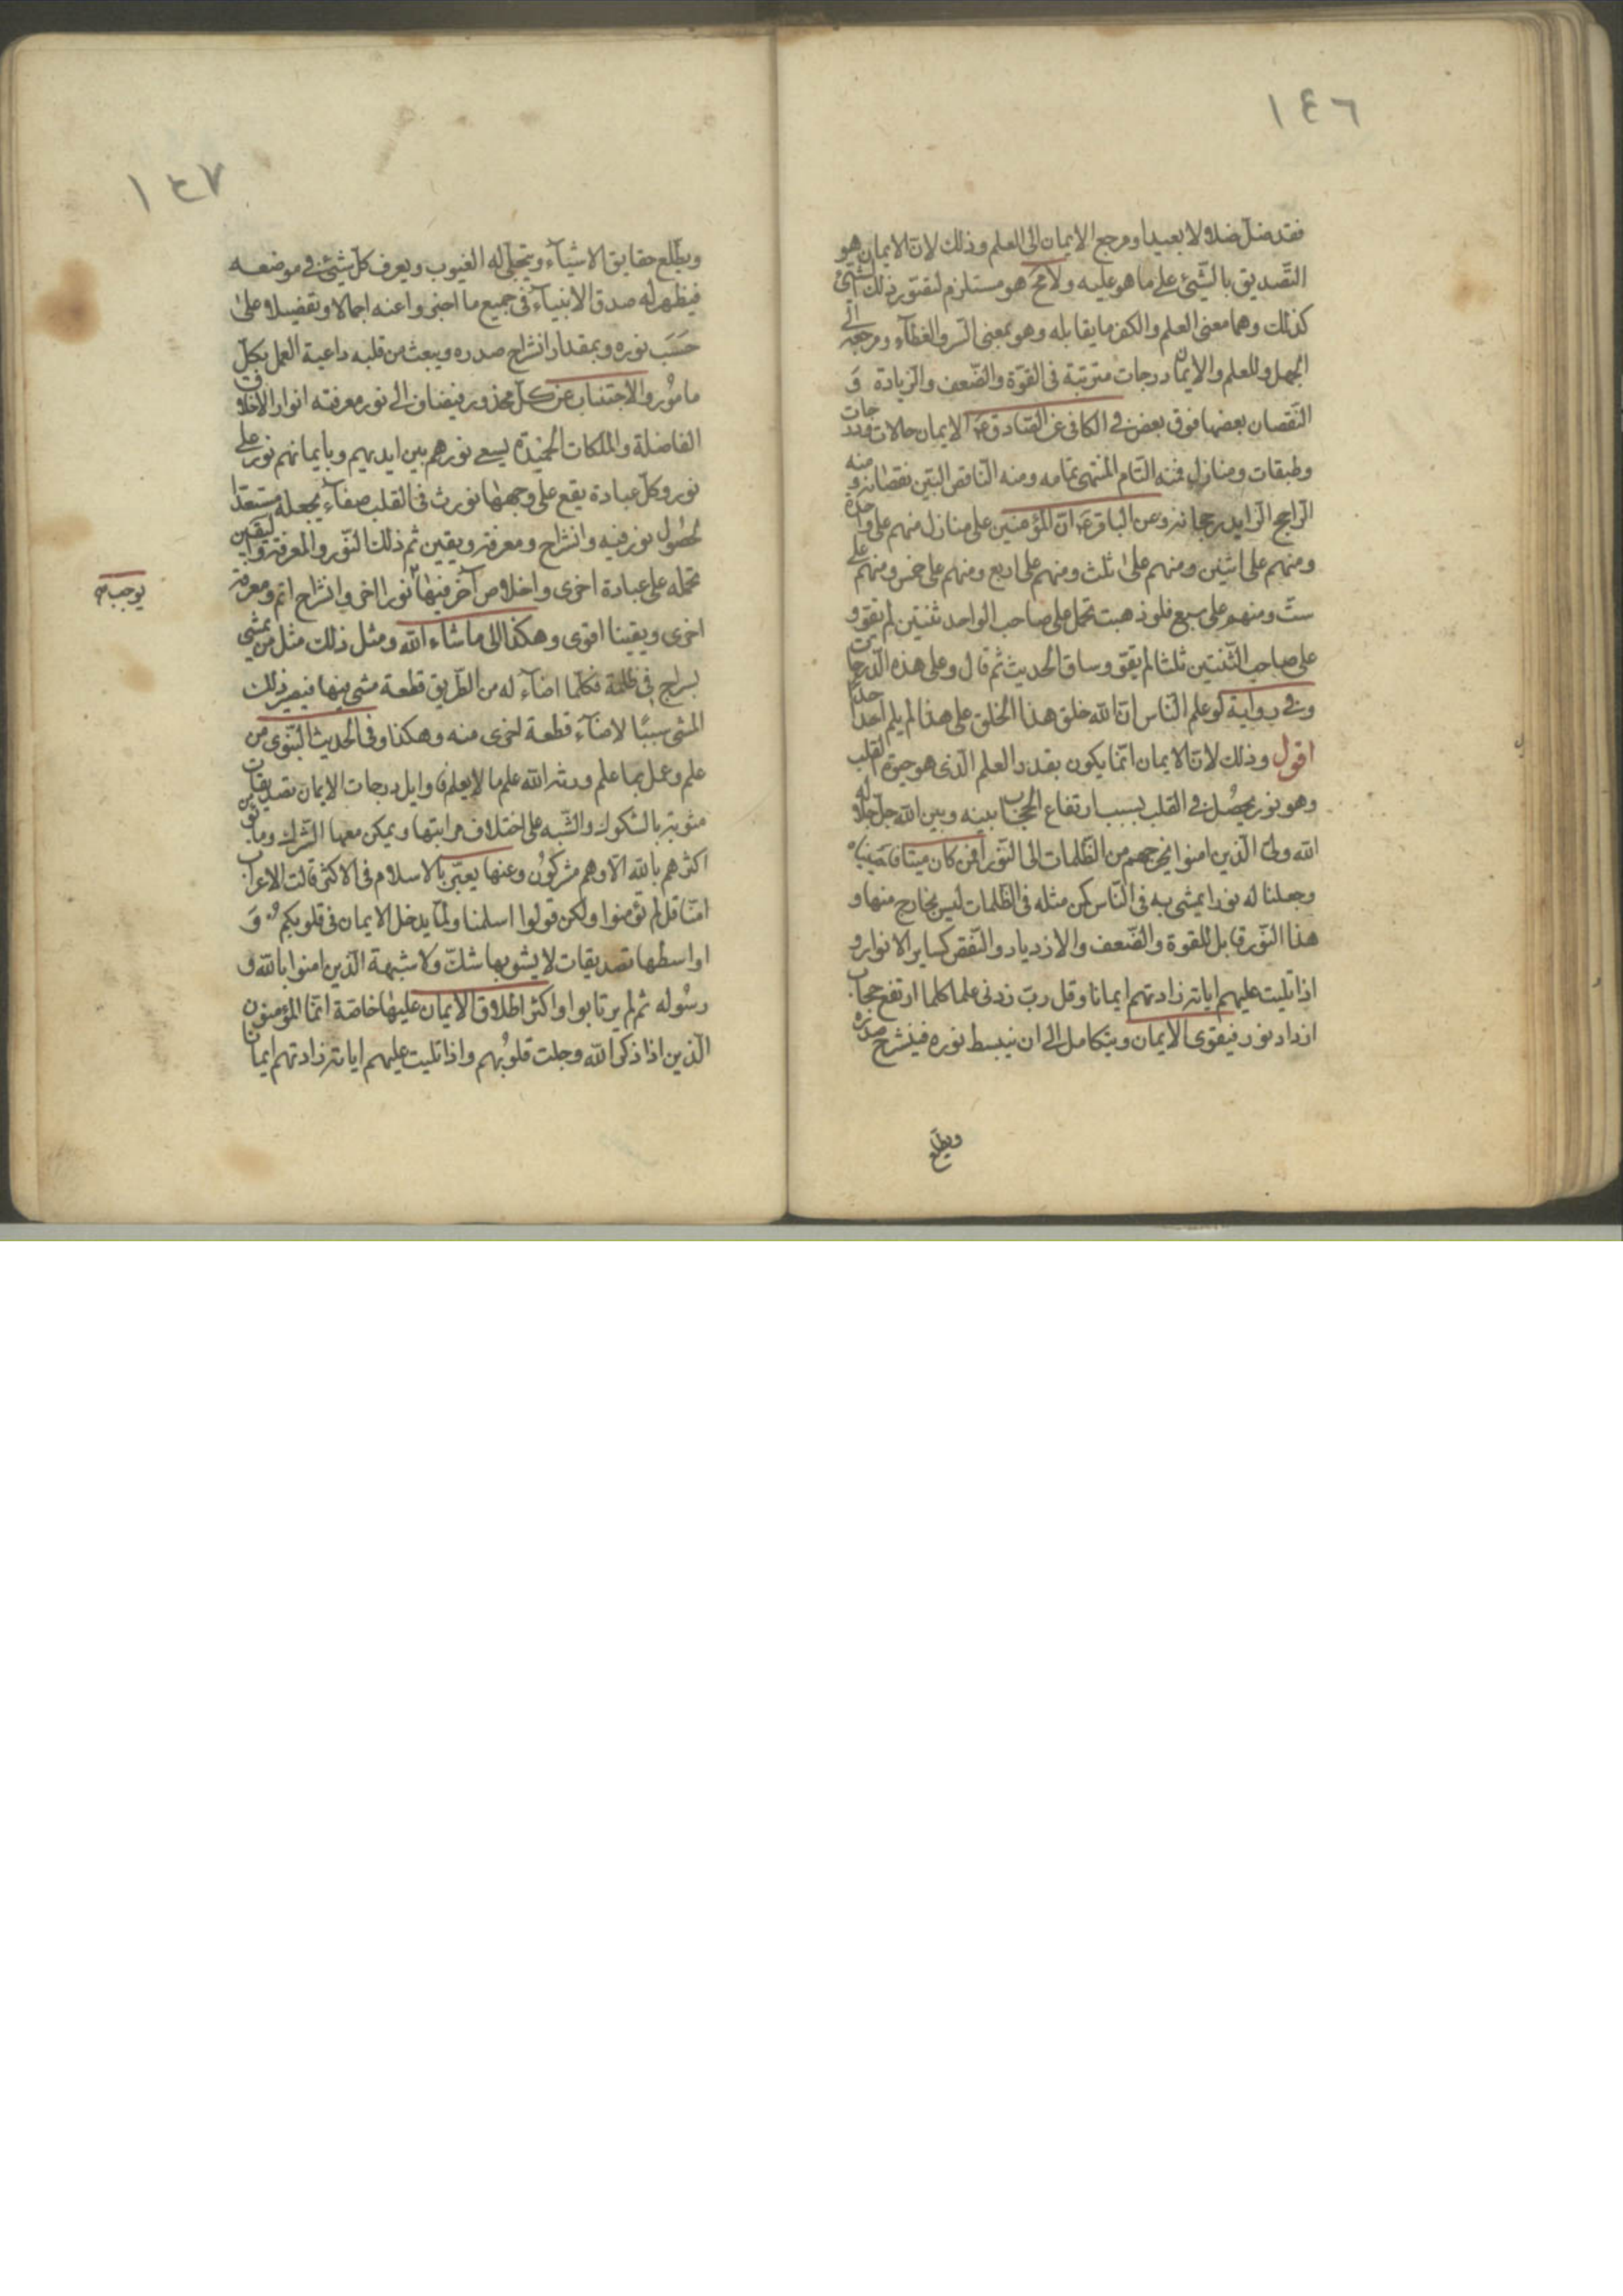 ١٤٦
فقد ضل ضلالا بعيدا ومرجع الايمان الى العلم وذلك لان الايمان هو
التصديق بالشئ على ما هو عليه ولا مح هو مستلزم لتصور ذلك الشئ
كذلك وهما معنى العلم والكفر ما يقابله وهو بمعنى الستر والغطاء ومرجعه الى
الجهل وللعلم والايمان درجات مترتبة فى القوة والضعف والزيادة و
النقصان بعضها فوق بعض فى الكافى عن الصادق ع الايمان حالات ودرجات
وطبقات ومنازل فمنه التام المنتهى تمامه ومنه الناقص البين نقصانه ومنه
الراجح الزايد رجحانه وعن الباقر ع ان المؤمنين على منازل منهم على واحدة
ومنهم على اثنين ومنهم على ثلث ومنهم على اربع ومنهم على خمس ومنهم على
ست ومنهم على سبع فلو ذهبت تحمل على صاحب الواحد ثنتين لم يقو و
على صاحب الثنتين ثلثا لم يقو وساق الحديث ثم قال وعلى هذه الدرجات
وفى رواية لو علم الناس ان الله خلق هذا الخلق على هذا لم يلم احد احدا
اقول وذلك لان الايمان انما يكون بقدر العلم الذى هو حيوة القلب
وهو نور يحصل فى القلب بسبب ارتفاع الحجاب بينه وبين الله جل جلاله
الله ولى الذين امنوا يخرجهم من الظلمات الى النور افمن كان ميتا فاحييناه
وجعلنا له نورا يمشى به فى الناس كمن مثله فى الظلمات ليس بخارج منها و
هذا النور قابل للقوة والضعف والازدياد والنقص كساير الانوار و
اذا تليت عليهم اياته زادتهم ايمانا وقل رب زدنى علما كلما ارتفع حجاب
ازداد نور فيقوى الايمان ويتكامل الى ان ينبسط نوره فينشرح صدره
ويطلع
١٤٧
ويطلع حقايق الاشياء ويتجلى له الغيوب ويعرف كل شئ فى موضعه
فيظهر له صدق الانبياء فى جميع ما اخبروا عنه اجمالا وتفضيلا على
حسب نوره وبمقدار انشراح صدره ويبعث من قلبه داعية العمل بكل
مامور والاجتناب عن كل محذور فيضاف الى نور معرفته انوار الاخلاق
الفاضلة والملكات الحميدة يسعى نورهم بين ايديهم وبايمانهم نور على
نور وكل عبادة يقع على وجهها تورث فى القلب صفاء يجعله مستعدا
لحصول نور فيه وانشراح ومعرفة ويقين ثم ذلك النور والمعرفة واليقين
تحمله على عبادة اخرى واخلاص آخر فيها نورا اخر وانشراح اتم ومعرفة
يوجب
اخرى ويقينا اقوى وهكذا الى ما شاء الله ومثل ذلك مثل من يمشى
بسراج فى ظلمة فكلما اضاء له من الطريق قطعة مشى فيها فيصير ذلك
المشى سببا لاضاء قطعة اخرى منه وهكذا وفى الحديث النبوى من
علم وعمل بما علم ورثه الله علم ما لا يعلم فاوايل درجات الايمان تصديقات
مشوبة بالشكوك والشبه على اختلاف مراتبها ويمكن معها الشرك وما يؤمن
اكثرهم بالله الا وهم مشركون وعنها يعبر بالاسلام فى الاكثر قالت الاعراب
امنا قل لم تؤمنوا ولكن قولوا اسلمنا ولما يدخل الايمان فى قلوبكم و
اواسطها تصديقات لا يشوبها شك ولا شبهة الذين امنوا بالله و
رسوله ثم لم يرتابوا واكثر اطلاق الايمان عليها خاصة انما المؤمنون
الذين اذا ذكر الله وجلت قلوبهم واذا تليت عليهم اياته زادتهم ايمانا